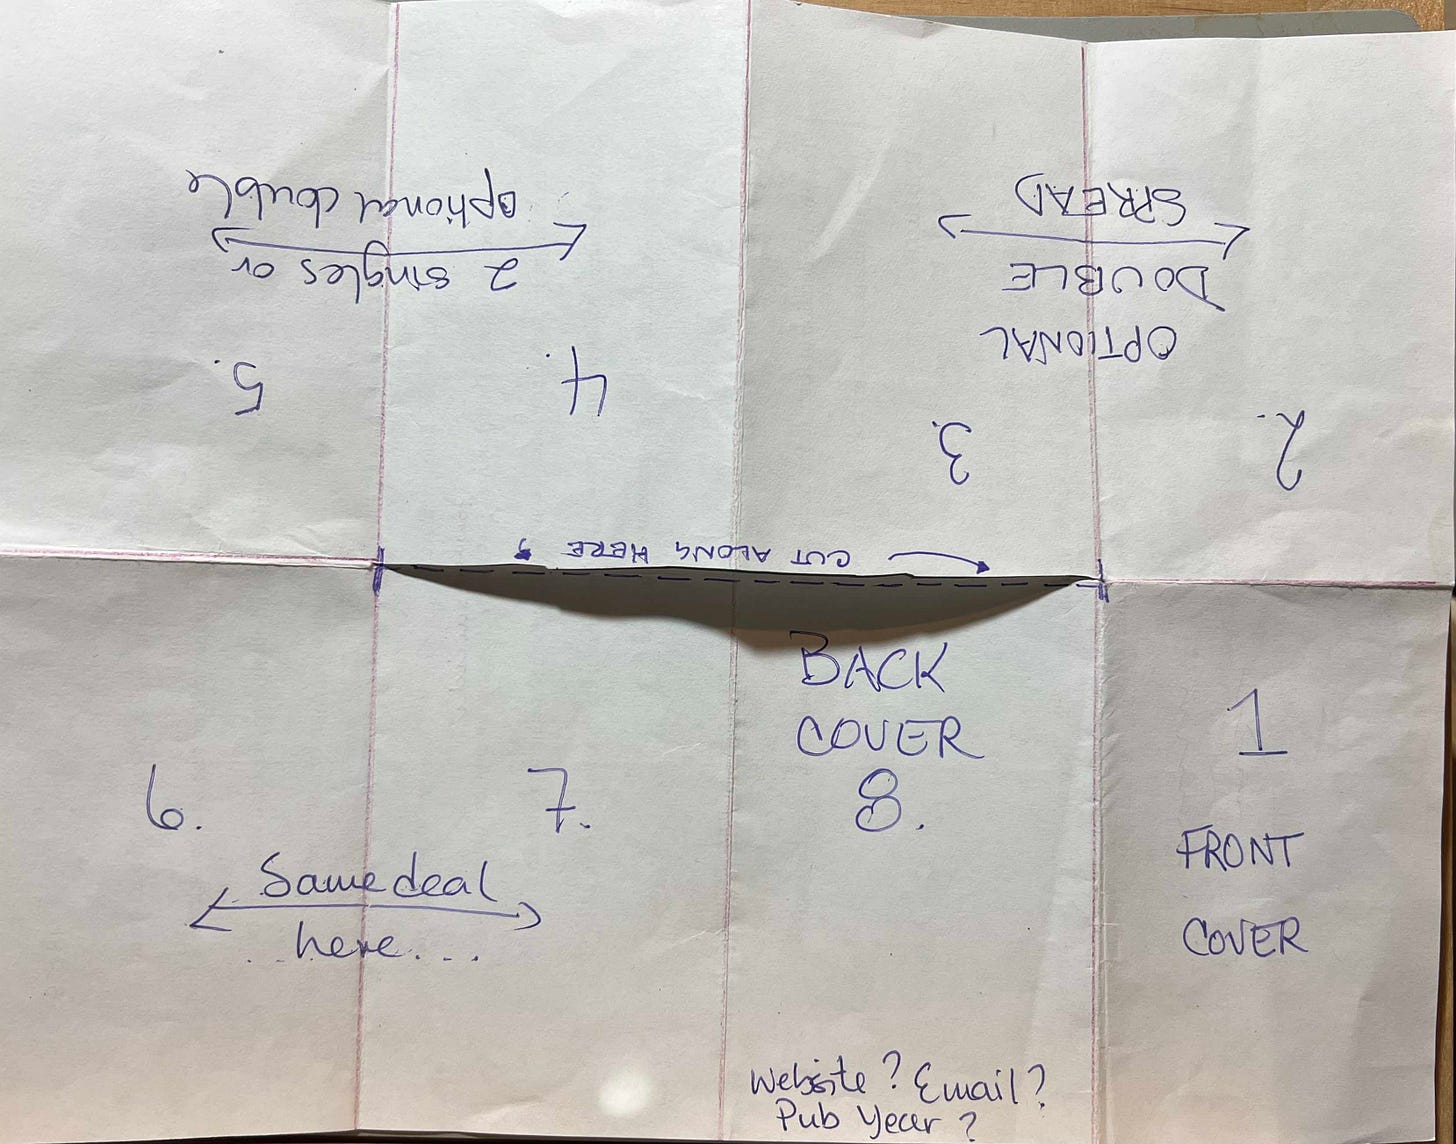 1
FRONT
COVER
2.
OPTIONAL
DOUBLE
SPREAD
3.
4.
2 singles or
optional double
5.
CUT ALONG HERE
6.
7.
Same deal
here...
BACK
COVER
8.
Website? Email?
Pub Year?